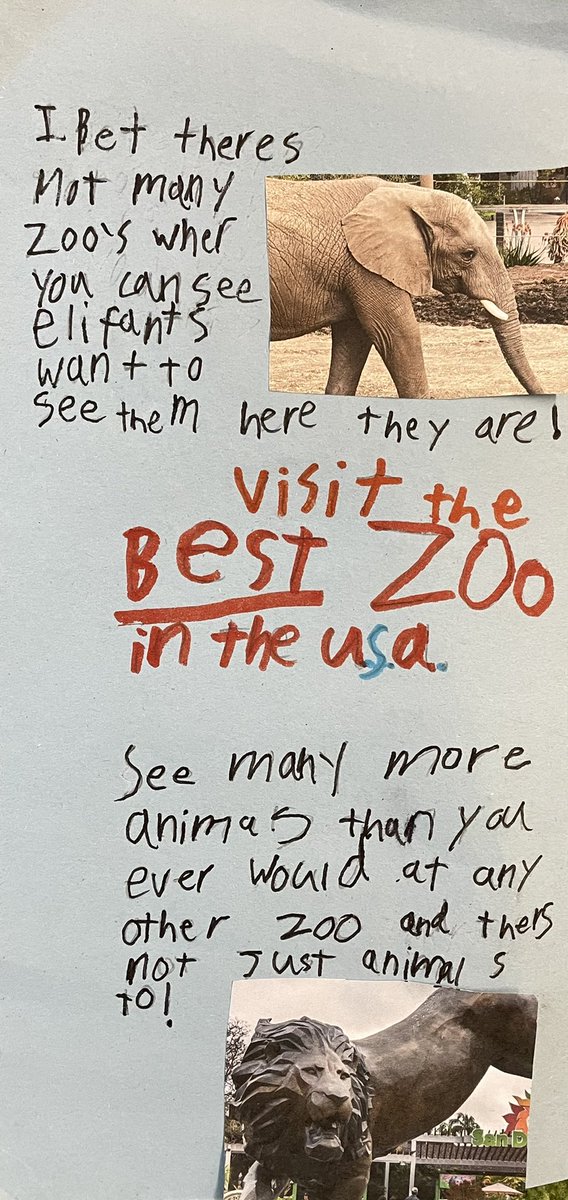 I Bet theres
Not many
Zoo's wher
you can see
elifants
want to
see them here they are!
visit the
Best Zoo
in the u.s.a.
See many more
animas than you
ever would at any
other zoo and thers
not Just animals
to!
San D